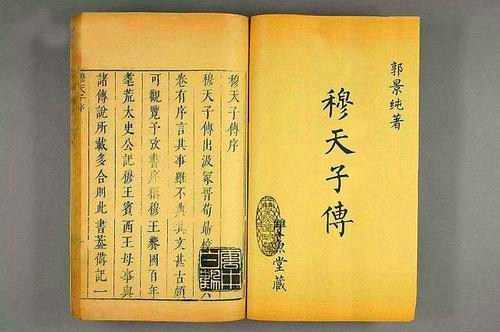 郭景純著
穆天子傳
雙魚堂藏
穆天子傳序
穆天子傳出汲冢晉荀勗校六
卷有序言其事雖不典其文甚古頗
可觀覽予攷書序稱穆王饗國百年
耄荒太史公記穆王賓西王母事與
諸傳說所載多合則此書葢備記一
穆天子序
雲中白鶴